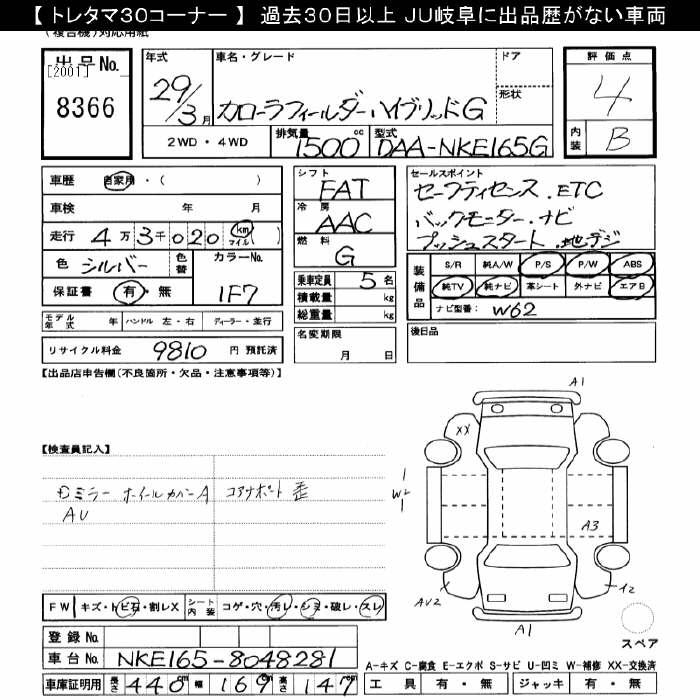 【 トレタマ30コーナー 】 過去30日以上 JU岐阜に出品歴がない車両
(複合機)対応用紙
出品No.
[2001]
8366
年式
29/3月
車名・グレード
カローラフィールダーハイブリッドG
ドア
形状
2WD・4WD
排気量
1500cc
型式
DAA-NKE165G
評価点
4
内装
B
車歴 自家用・( )
車検 年 月
走行 4万3千020 km マイル ( )
色 シルバー 色替 カラーNo. 1F7
保証書 有・無
モデル年式 年 ハンドル 左・右 ディーラー・並行
リサイクル料金 9810 円 預託済
シフト
FAT
冷房
AAC
燃料
G
乗車定員 5名
積載量 kg
総重量 kg
名変期限
月 日
セールスポイント
セーフティセンス.ETC
バックモニター.ナビ
プッシュスタート.地デジ
装備品
S/R 純A/W P/S P/W ABS
純TV 純ナビ 革シート 外ナビ エアB
ナビ型番: W62
後日品
【出品店申告欄(不良箇所・欠品・注意事項等)】
【検査員記入】
ミラー ホイールカバーA
AU
コアサポート 歪
A1
XX
W2
A3
AU2
A1
スペア
FW キズ・トビ石・割レX シート内装 コゲ・穴・汚レ・シミ・破レ・スレ
登録No.
車台No. NKE165-8048281
車庫証明用 長さ 440cm 幅 169cm 高さ 147cm
A-キズ C-腐食 E-エクボ S-サビ U-凹ミ W-補修 XX-交換済
工具 有・無 ジャッキ 有・無